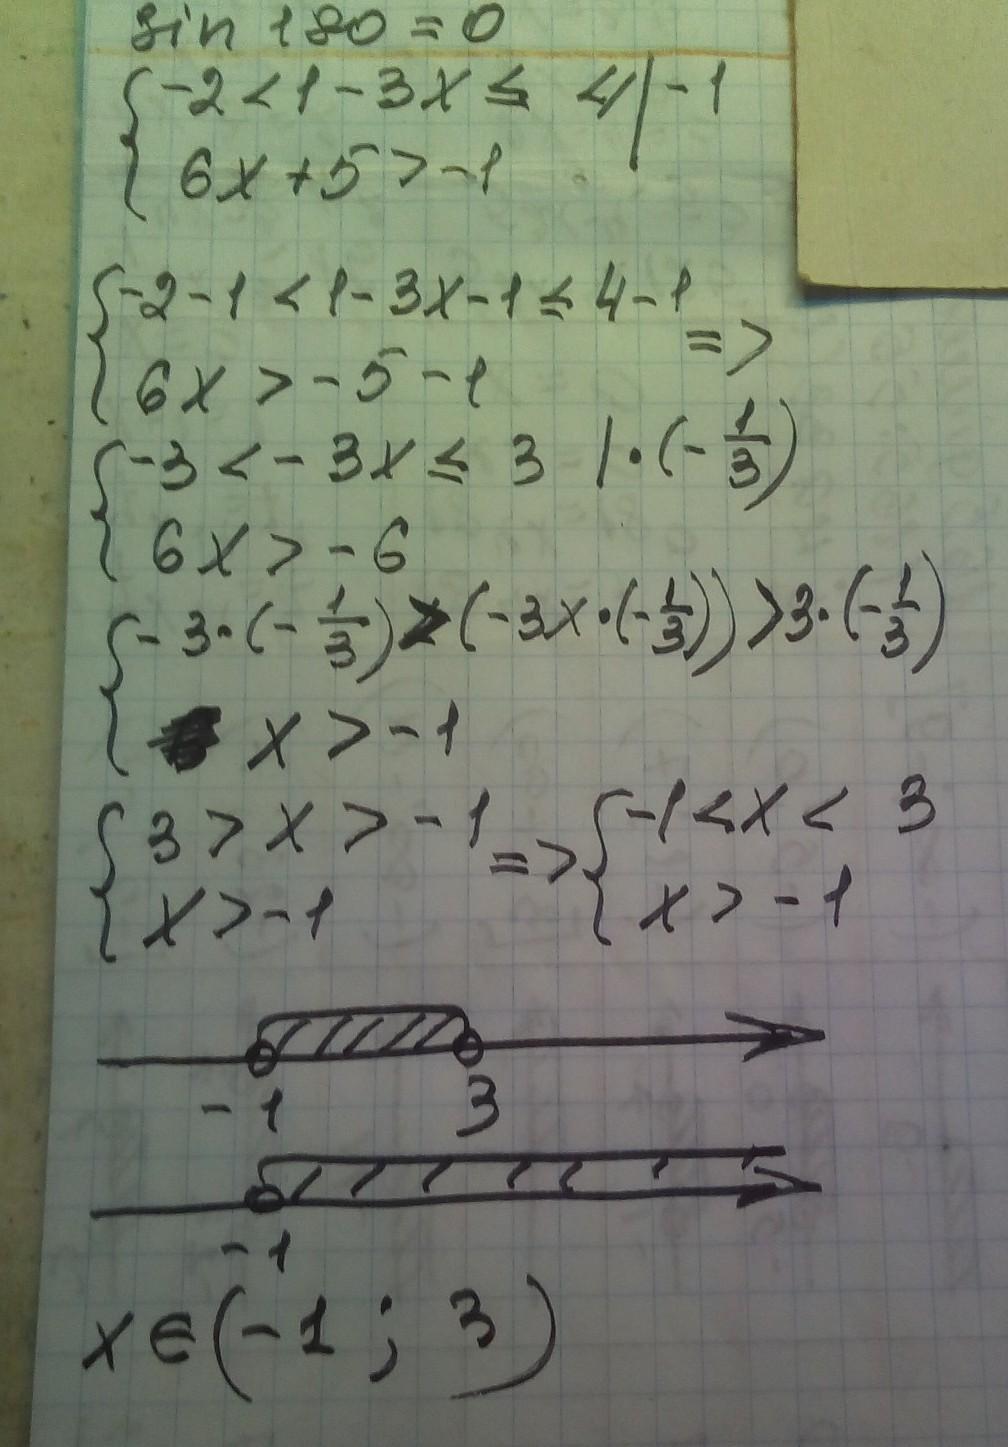 sin 180 = 0
{ -2 < 1 - 3x ≤ 4 | -1
6x + 5 > -1
{ -2 - 1 < 1 - 3x - 1 ≤ 4 - 1
6x > -5 - 1 =>
{ -3 < - 3x ≤ 3 | · (- 1/3)
6x > - 6
{ - 3 · (- 1/3) > (-3x · (- 1/3)) > 3 · (- 1/3)
x > - 1
{ 3 > x > - 1 => { -1 < x < 3
x > - 1 x > - 1
-1 3
-1
x ∈ (-1 ; 3)